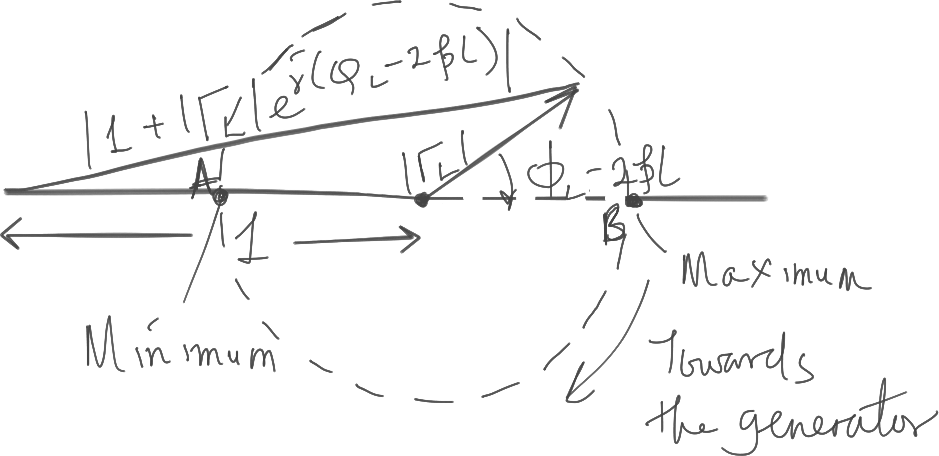 |1 + |Γ_L| e^{j(φ_L - 2βl)}|
|Γ_L|
φ_L - 2βl
A
B
1
Minimum
Maximum
Towards
the generator